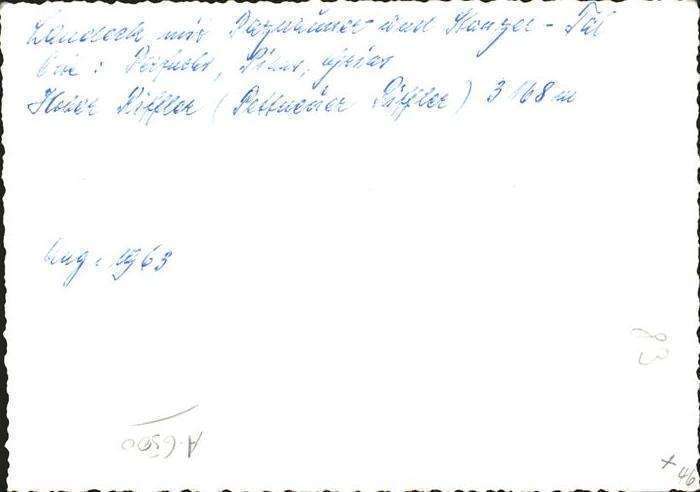 Landeck mit Paznauner und Stanzer-Tal
Orte: Perfuchs, Pians, Grins
Hoher Riffler (Pettneuer Riffler) 3168 m
Aug. 1963
83
A-6500
+ 46